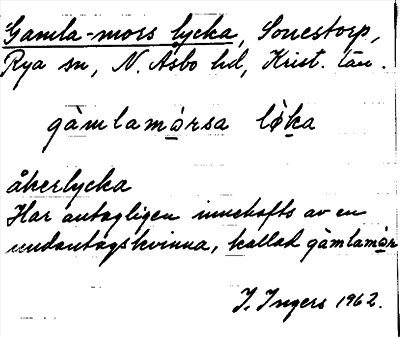 Gamla-mors lycka, Sonestorp,
Rya sn, N. Åsbo hd, Krist. län.
gàmlamo̲rsa lø̀k̲a
åkerlycka
Har antagligen innehafts av en
undantagskvinna, kallad gàmlamo̲r
I. Ingers 1962.